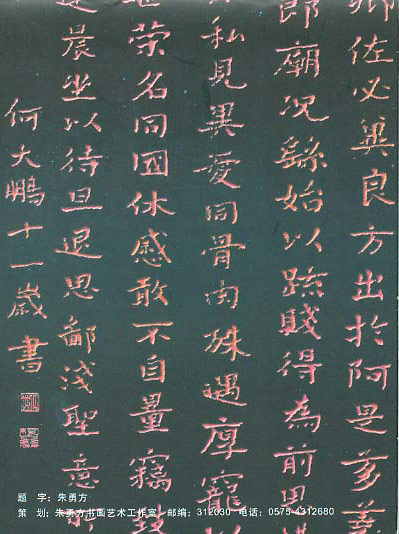 卿佐必冀良方出於阿是芻蕘
郎廟况繇始以疏賤得為前恩
私見異愛同骨肉殊遇厚寵以
世榮名同國休感敢不自量竊致
達晨坐以待旦退思鄙淺聖意所
何大鵬十一歲書
题 字：朱勇方
策 划：朱勇方书画艺术工作室 邮编：312030 电话：0575-4312680